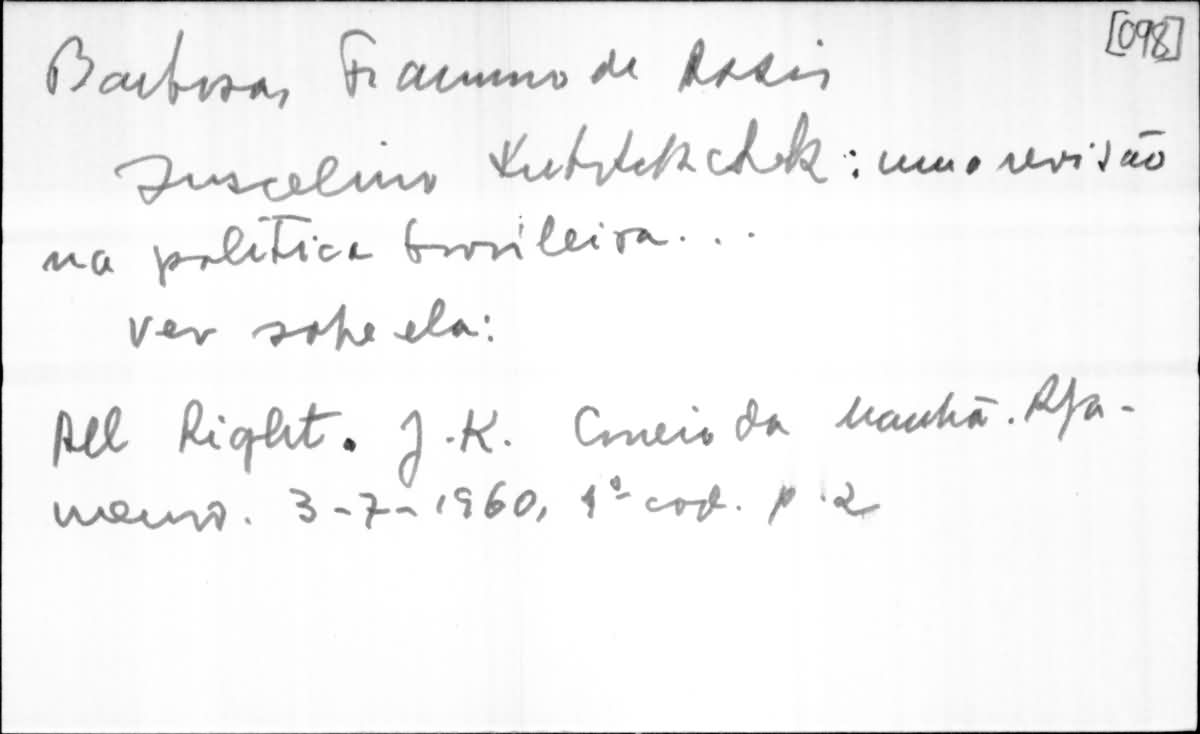 [098]
Barbosa, Francisco de Assis
Juscelino Kubitschek : uma revisão
na política brasileira...
ver sobre ela:
All Right. J.K. Correio da Manhã.
3-7-1960, 1º cad. p. 2